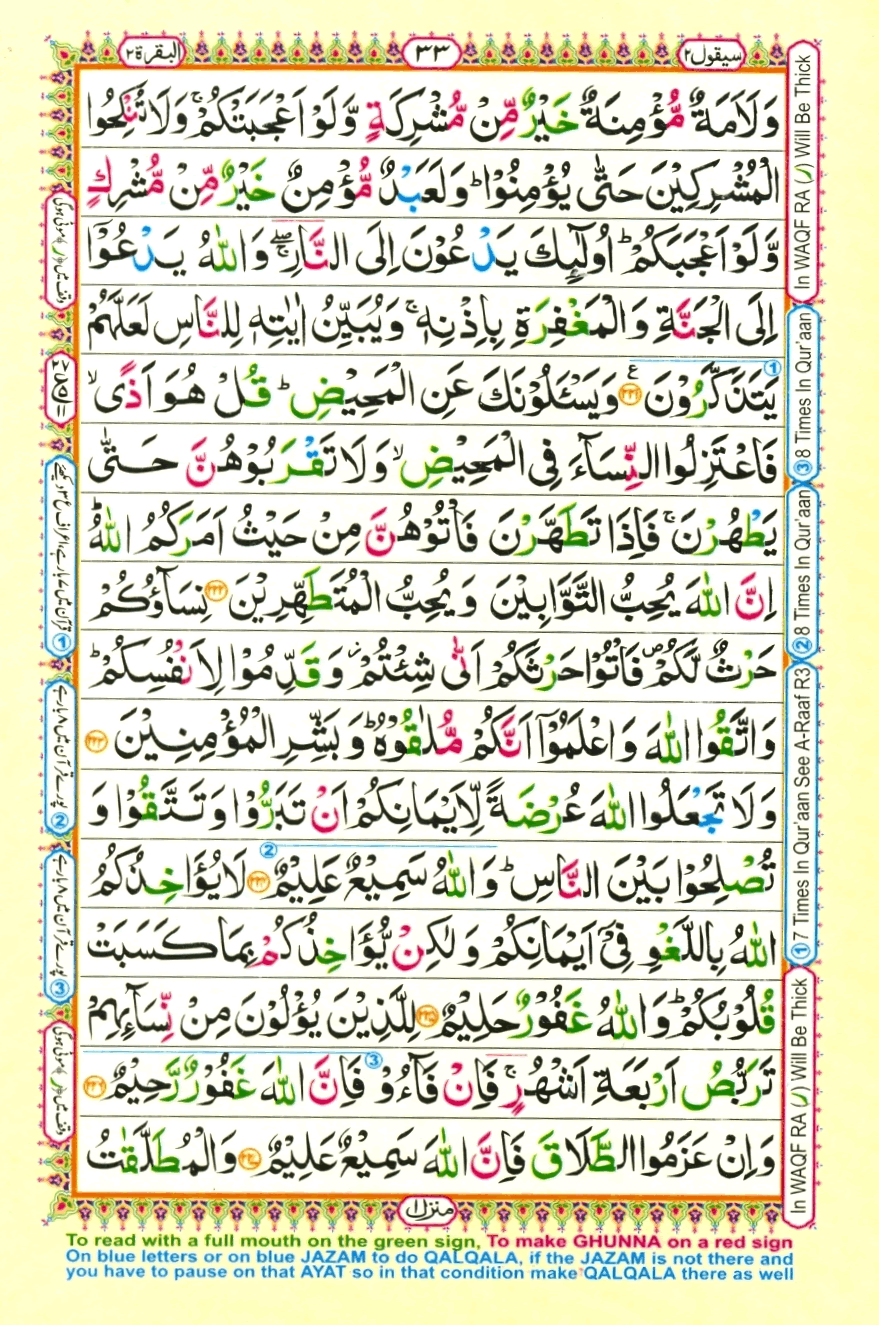 البقرة ٢
٣٣
سيقول ٢
وَلَاَمَةٌ مُّؤْمِنَةٌ خَيْرٌ مِّنْ مُّشْرِكَةٍ وَّلَوْ اَعْجَبَتْكُمْ ۚ وَلَا تُنْكِحُوا
الْمُشْرِكِيْنَ حَتّٰى يُؤْمِنُوْا ؕ وَلَعَبْدٌ مُّؤْمِنٌ خَيْرٌ مِّنْ مُّشْرِكٍ
وَّلَوْ اَعْجَبَكُمْ ؕ اُولٰٓئِكَ يَدْعُوْنَ اِلَى النَّارِ ۖۚ وَاللّٰهُ يَدْعُوْٓا
اِلَى الْجَنَّةِ وَالْمَغْفِرَةِ بِاِذْنِهٖ ۚ وَيُبَيِّنُ اٰيٰتِهٖ لِلنَّاسِ لَعَلَّهُمْ
يَتَذَكَّرُوْنَ ﴿۲۲۱﴾ ع وَيَسْـَٔلُوْنَكَ عَنِ الْمَحِيْضِ ؕ قُلْ هُوَ اَذًى ۙ
فَاعْتَزِلُوا النِّسَآءَ فِى الْمَحِيْضِ ۙ وَلَا تَقْرَبُوْهُنَّ حَتّٰى
يَطْهُرْنَ ۚ فَاِذَا تَطَهَّرْنَ فَاْتُوْهُنَّ مِنْ حَيْثُ اَمَرَكُمُ اللّٰهُ ؕ
اِنَّ اللّٰهَ يُحِبُّ التَّوَّابِيْنَ وَيُحِبُّ الْمُتَطَهِّرِيْنَ ﴿۲۲۲﴾ نِسَآؤُكُمْ
حَرْثٌ لَّكُمْ ۪ فَاْتُوْا حَرْثَكُمْ اَنّٰى شِئْتُمْ ؗ وَقَدِّمُوْا لِاَنْفُسِكُمْ ؕ
وَاتَّقُوا اللّٰهَ وَاعْلَمُوْٓا اَنَّكُمْ مُّلٰقُوْهُ ؕ وَبَشِّرِ الْمُؤْمِنِيْنَ ﴿۲۲۳﴾
وَلَا تَجْعَلُوا اللّٰهَ عُرْضَةً لِّاَيْمَانِكُمْ اَنْ تَبَرُّوْا وَتَتَّقُوْا وَ
تُصْلِحُوْا بَيْنَ النَّاسِ ؕ وَاللّٰهُ سَمِيْعٌ عَلِيْمٌ ﴿۲۲۴﴾ لَا يُؤَاخِذُكُمُ
اللّٰهُ بِاللَّغْوِ فِىْٓ اَيْمَانِكُمْ وَلٰكِنْ يُّؤَاخِذُكُمْ بِمَا كَسَبَتْ
قُلُوْبُكُمْ ؕ وَاللّٰهُ غَفُوْرٌ حَلِيْمٌ ﴿۲۲۵﴾ لِلَّذِيْنَ يُؤْلُوْنَ مِنْ نِّسَآئِهِمْ
تَرَبُّصُ اَرْبَعَةِ اَشْهُرٍ ۚ فَاِنْ فَآءُوْ فَاِنَّ اللّٰهَ غَفُوْرٌ رَّحِيْمٌ ﴿۲۲۶﴾
وَاِنْ عَزَمُوا الطَّلَاقَ فَاِنَّ اللّٰهَ سَمِيْعٌ عَلِيْمٌ ﴿۲۲۷﴾ وَالْمُطَلَّقٰتُ
منزل ١
In WAQF RA (ر) Will Be Thick
③ 8 Times In Qur'aan
② 8 Times In Qur'aan
① 7 Times In Qur'aan See A-Raaf R3
In WAQF RA (ر) Will Be Thick
To read with a full mouth on the green sign, To make GHUNNA on a red sign
On blue letters or on blue JAZAM to do QALQALA, if the JAZAM is not there and
you have to pause on that AYAT so in that condition make QALQALA there as well